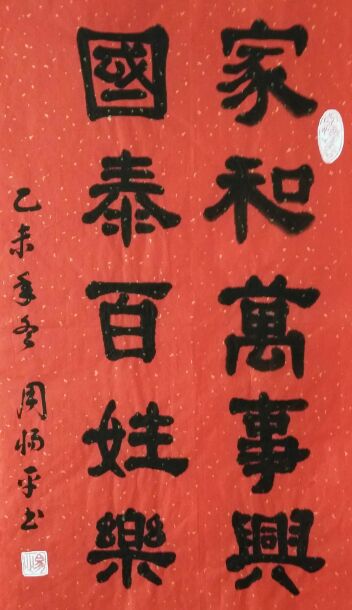 家和萬事興
國泰百姓樂
乙未年冬 周楊平书